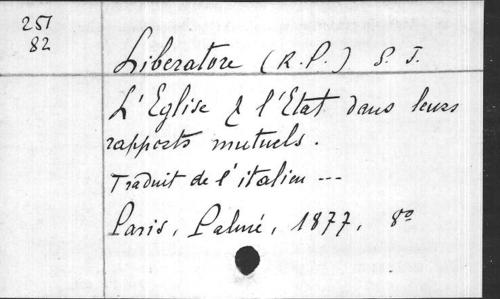 251
82
Liberatore (R.P.) S. J.
L'Eglise & l'Etat dans leurs
rapports mutuels.
Traduit de l'italien ---
Paris, Palmé, 1877, 8º